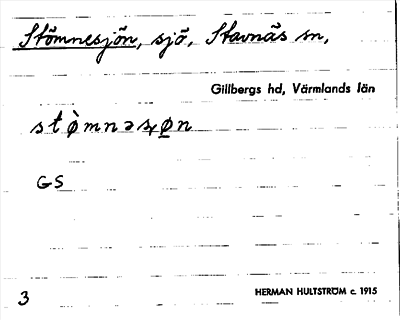 Stömnesjön, sjö, Stavnäs sn,
Gillbergs hd, Värmlands län
stø̀mnəsɟø̲n
GS
3
HERMAN HULTSTRÖM c. 1915